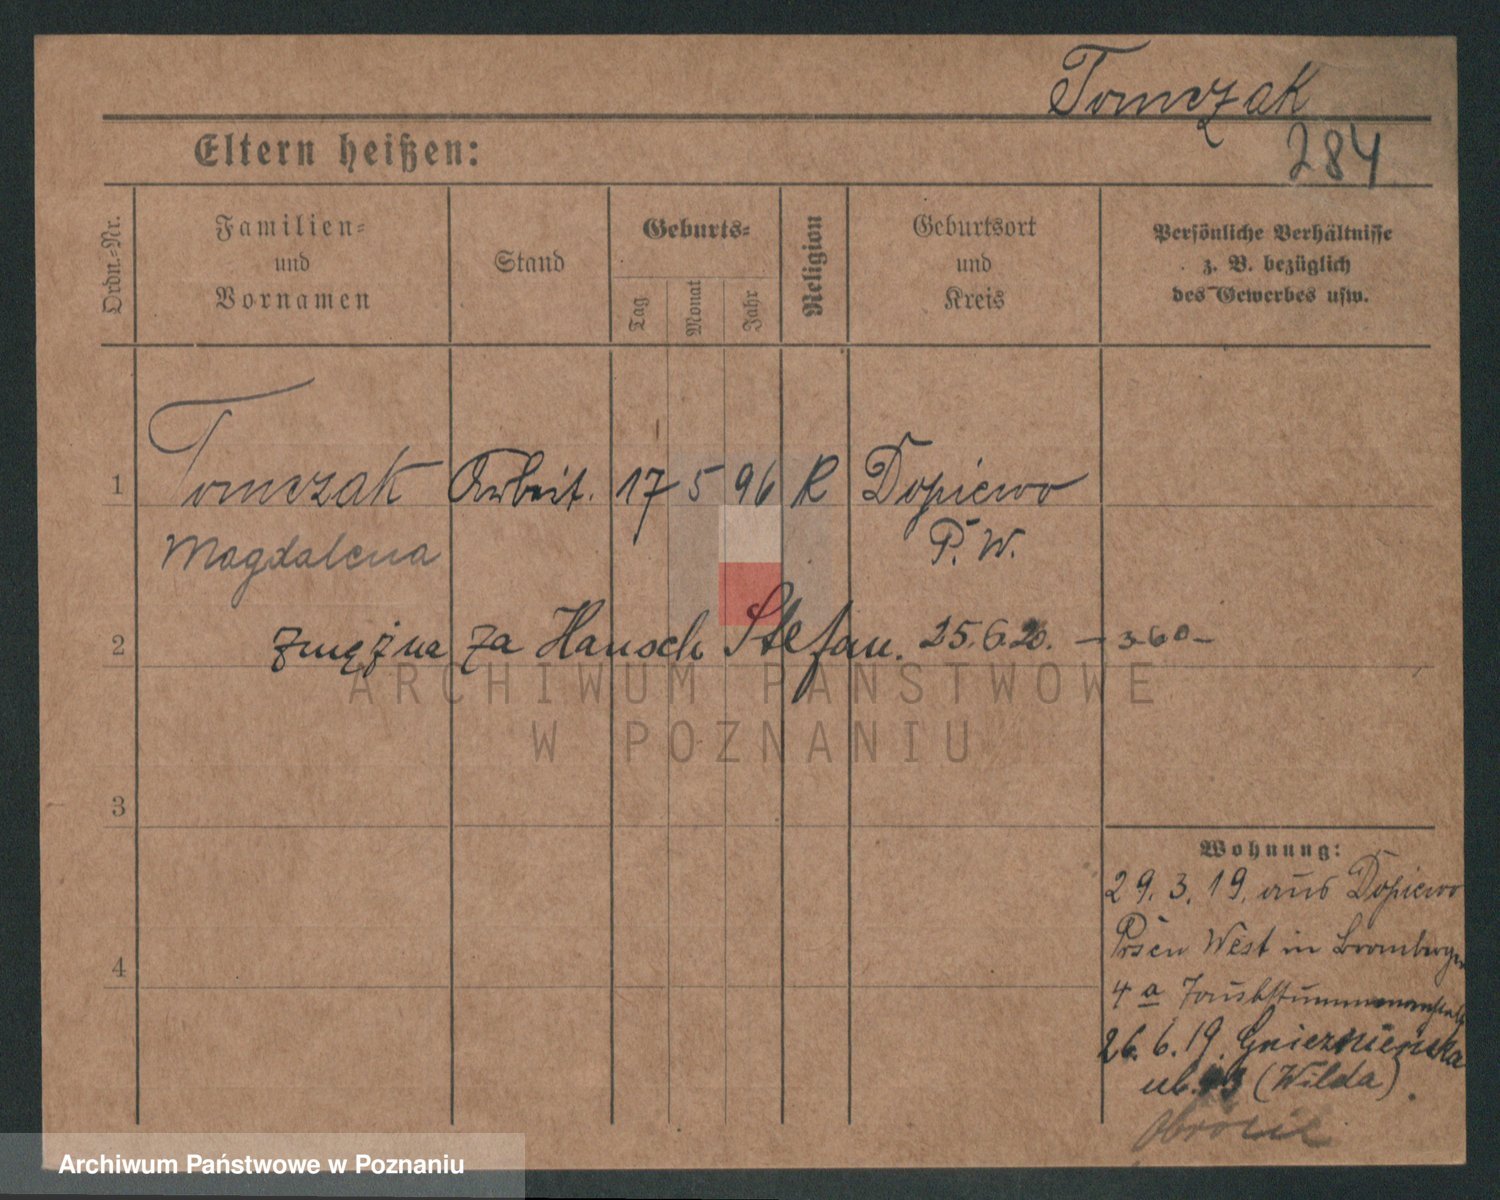 Tomczak
Eltern heißen:
284
Ordn.-Nr.
Familien-
und
Vornamen
Stand
Geburts-
Tag
Monat
Jahr
Religion
Geburtsort
und
Kreis
Persönliche Verhältnisse
z. B. bezüglich
des Gewerbes usw.
1 Tomczak Arbeit. 17 5 96 R Dopiewo
Magdalena P. W.
2 zmężna za Hausch Stefan. 25.6.20. – 360 –
ARCHIWUM PAŃSTWOWE
W POZNANIU
3
Wohnung:
29. 3. 19. aus Dopiewo
Posen West in Bromberger
4
4 a Taubstummenanstalt
26. 6. 19. Gnieznieńska
ub. (Wilda).
Archiwum Państwowe w Poznaniu